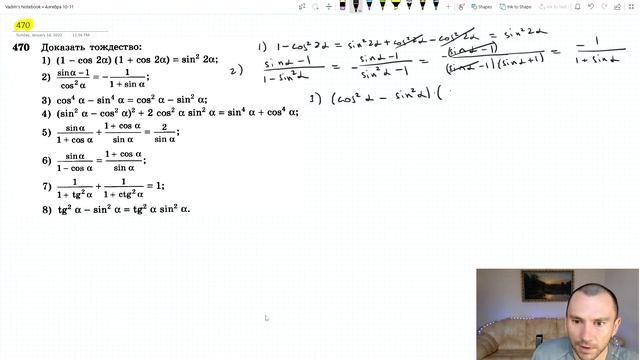 Vadim's Notebook » Алгебра 10-11
Shapes
Ink to Shape
Ink to Text
470
Sunday, January 16, 2022 12:36 PM
470 Доказать тождество:
1) (1 − cos 2α) (1 + cos 2α) = sin² 2α;
2) (sin α − 1)/cos² α = − 1/(1 + sin α);
3) cos⁴ α − sin⁴ α = cos² α − sin² α;
4) (sin² α − cos² α)² + 2 cos² α sin² α = sin⁴ α + cos⁴ α;
5) sin α/(1 + cos α) + (1 + cos α)/sin α = 2/sin α;
6) sin α/(1 − cos α) = (1 + cos α)/sin α;
7) 1/(1 + tg² α) + 1/(1 + ctg² α) = 1;
8) tg² α − sin² α = tg² α sin² α.
1) 1 − cos² 2α = sin² 2α + cos² 2α − cos² 2α = sin² 2α
2) (sin α − 1)/(1 − sin² α) = − (sin α − 1)/(sin² α − 1) = −(sin α − 1)/((sin α − 1)(sin α + 1)) = −1/(1 + sin α)
3) (cos² α − sin² α)·(